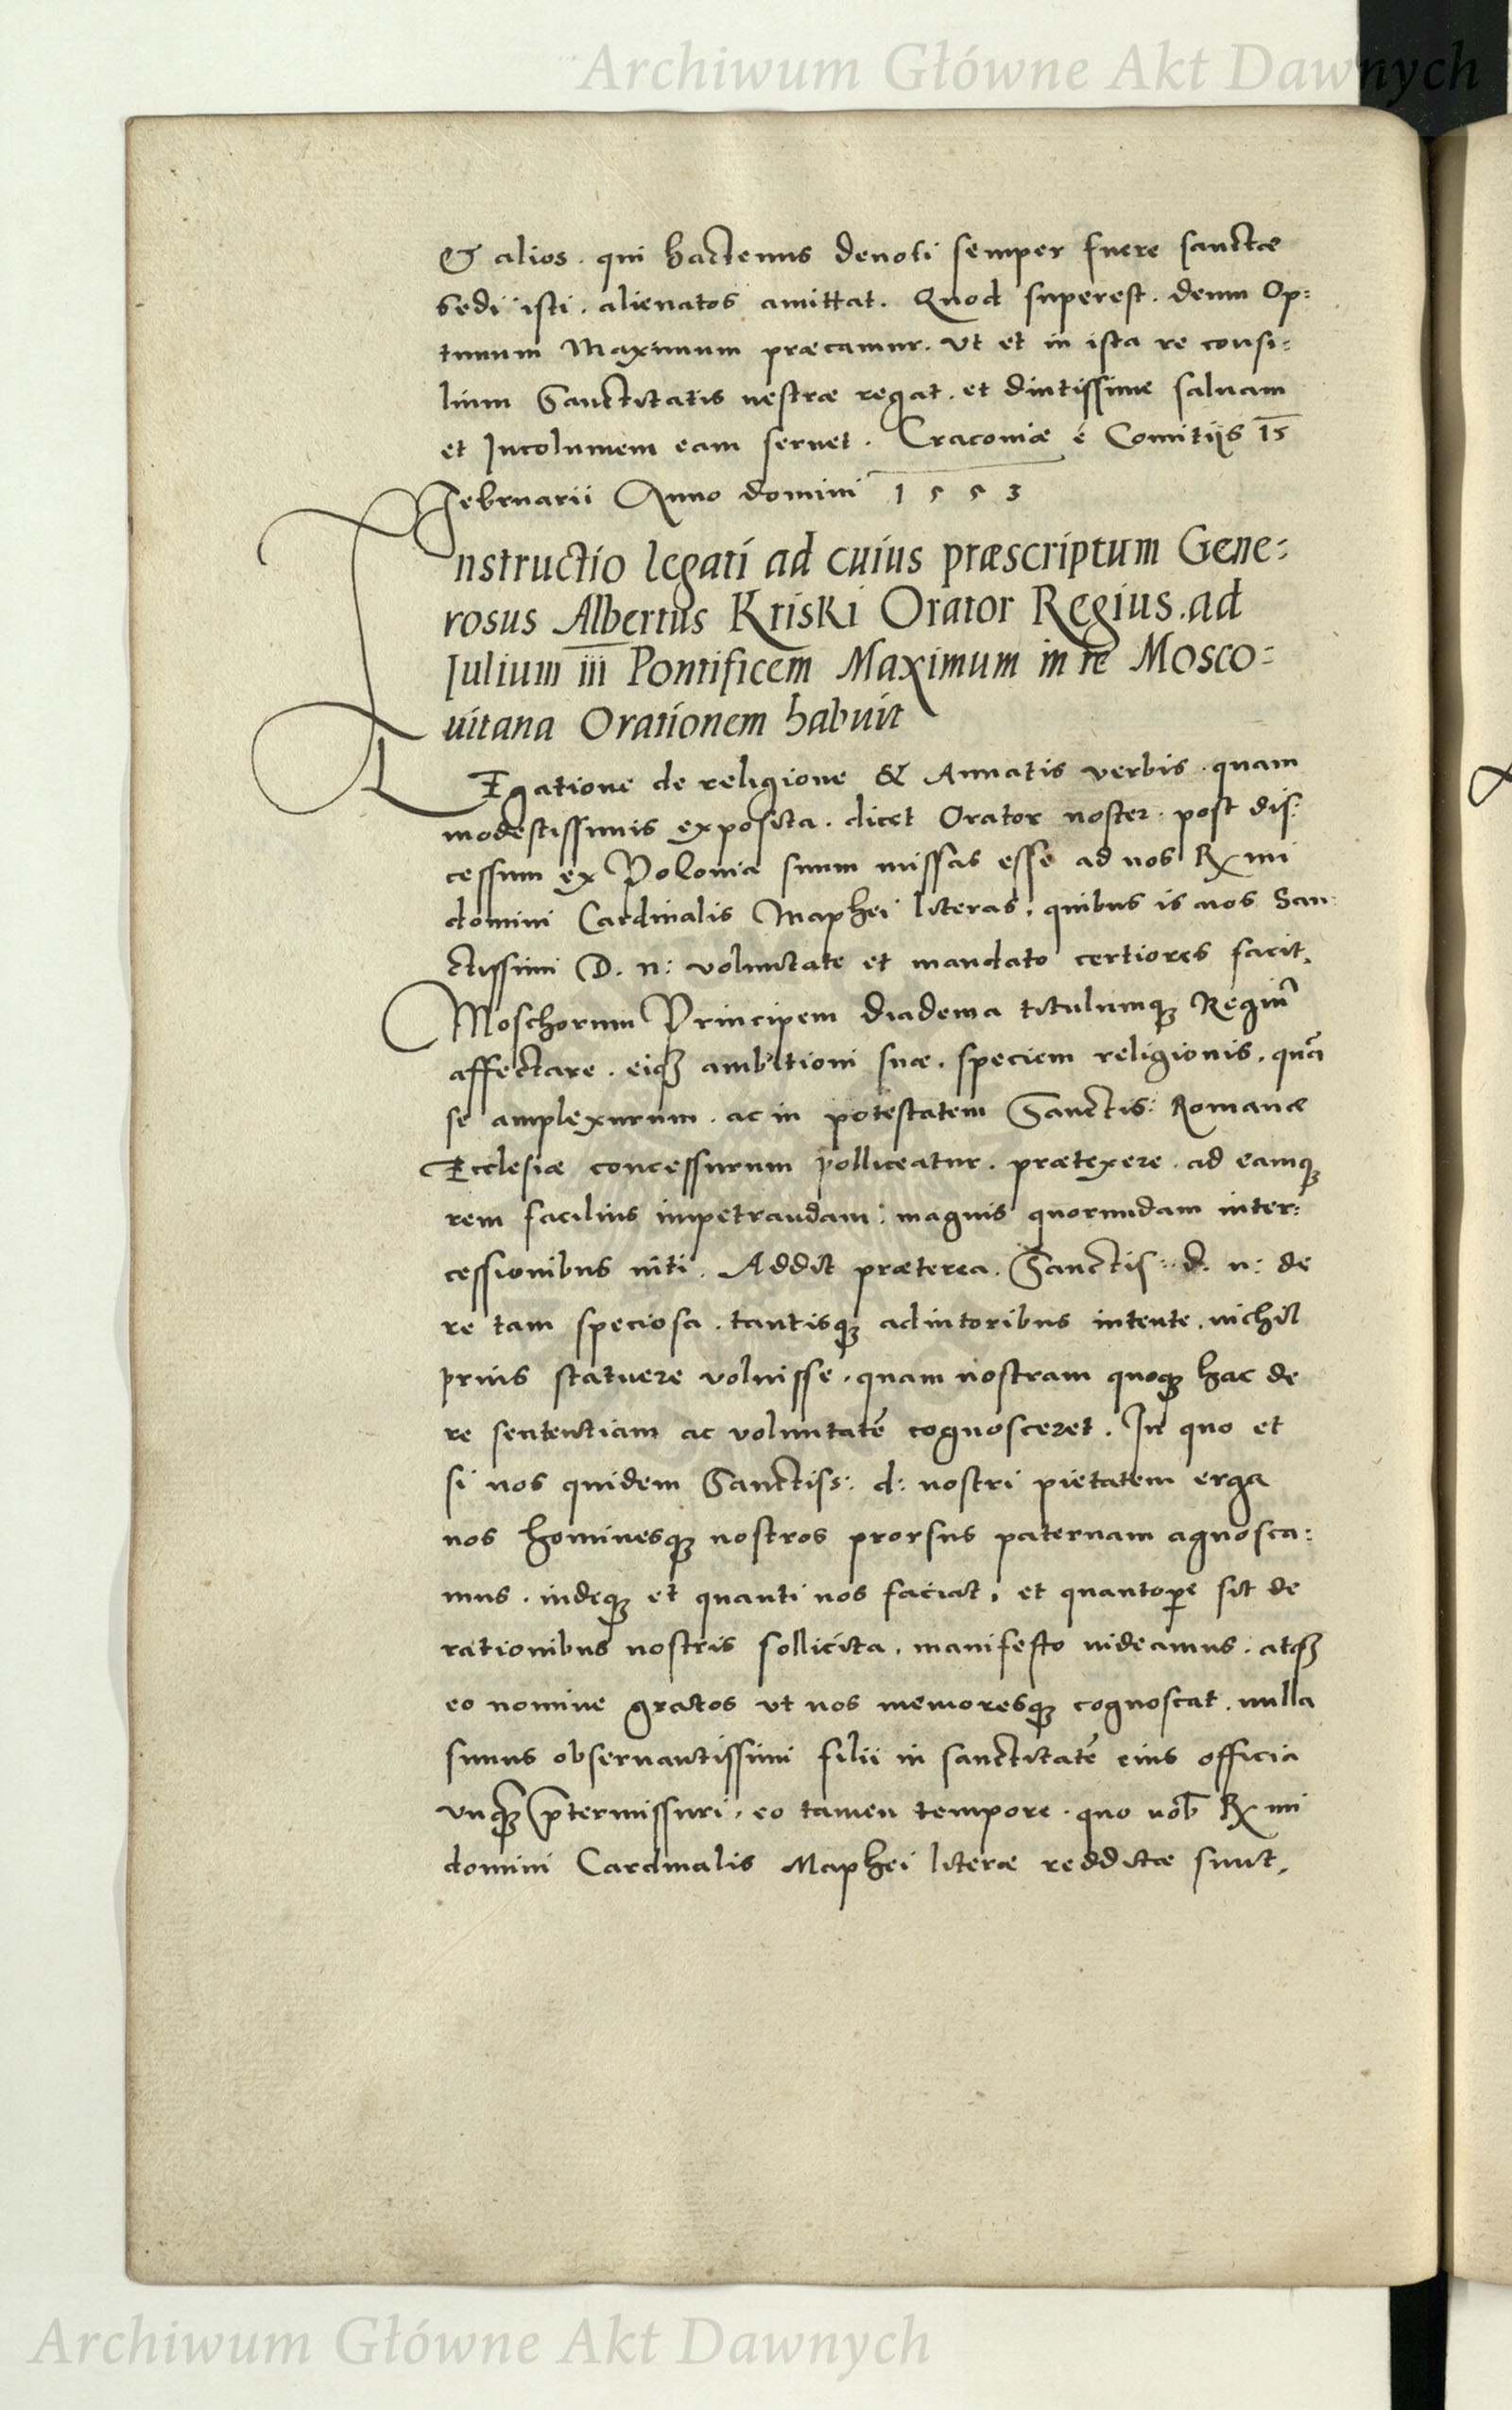 Archiwum Główne Akt Dawnych
& alios. qui hactenus deuoti semper fuere sanctæ
sedi isti. alienatos amittat. Quod superest. deum Op:
timum Maximum præcamur. Vt et in ista re consi:
lium Sanctitatis uestræ regat. et diutissime saluam
et Incolumem eam seruet. Cracouiæ é Comitijs 15
Februarii Anno domini 1553
Instructio legati ad cuius præscriptum Gene:
rosus Albertus Kriski Orator Regius. ad
Iulium iii Pontificem Maximum in re Mosco:
uitana Orationem habuit
LEgatione de religione & Annatis verbis. quam
modestissimis exposita. dicet Orator noster. post dis:
cessum ex Polonia suum missas esse ad nos Rmi
domini Cardinalis Maphei literas, quibus is nos San:
ctissimi D. n: voluntate et mandato certiores facit,
Moschorum Principem diadema titulumqꝫ Regiū
affectare. eiqꝫ ambitioni suæ. speciem religionis. quā
se amplexurum. ac in potestatem Sanctis: Romanæ
Ecclesiæ concessurum polliceatur. prætexere. ad eamqꝫ
rem facilius impetrandam: magnis quorundam inter:
cessionibus niti. Addit præterea. Sanctis: d. n: de
re tam speciosa. tantisqꝫ adiutoribus intente. nichil
prius statuere voluisse. quam nostram quoqꝫ hac de
re sententiam ac voluntatē cognosceret. In quo et
si nos quidem Sanctiss: d: nostri pietatem erga
nos hominesqꝫ nostros prorsus paternam agnosca:
mus. indeqꝫ et quanti nos faciat, et quantoꝑe sit de
rationibus nostris sollicita, manifesto uideamus. atqꝫ
eo nomine gratos vt nos memoresqꝫ cognoscat. nulla
sumus obseruantissimi filii in sanctitatē eius officia
vnqꝫ p̄termissuri, eo tamen tempore. quo nob̄ Rmi
domini Cardinalis Maphei literæ redditæ sunt,
Archiwum Główne Akt Dawnych